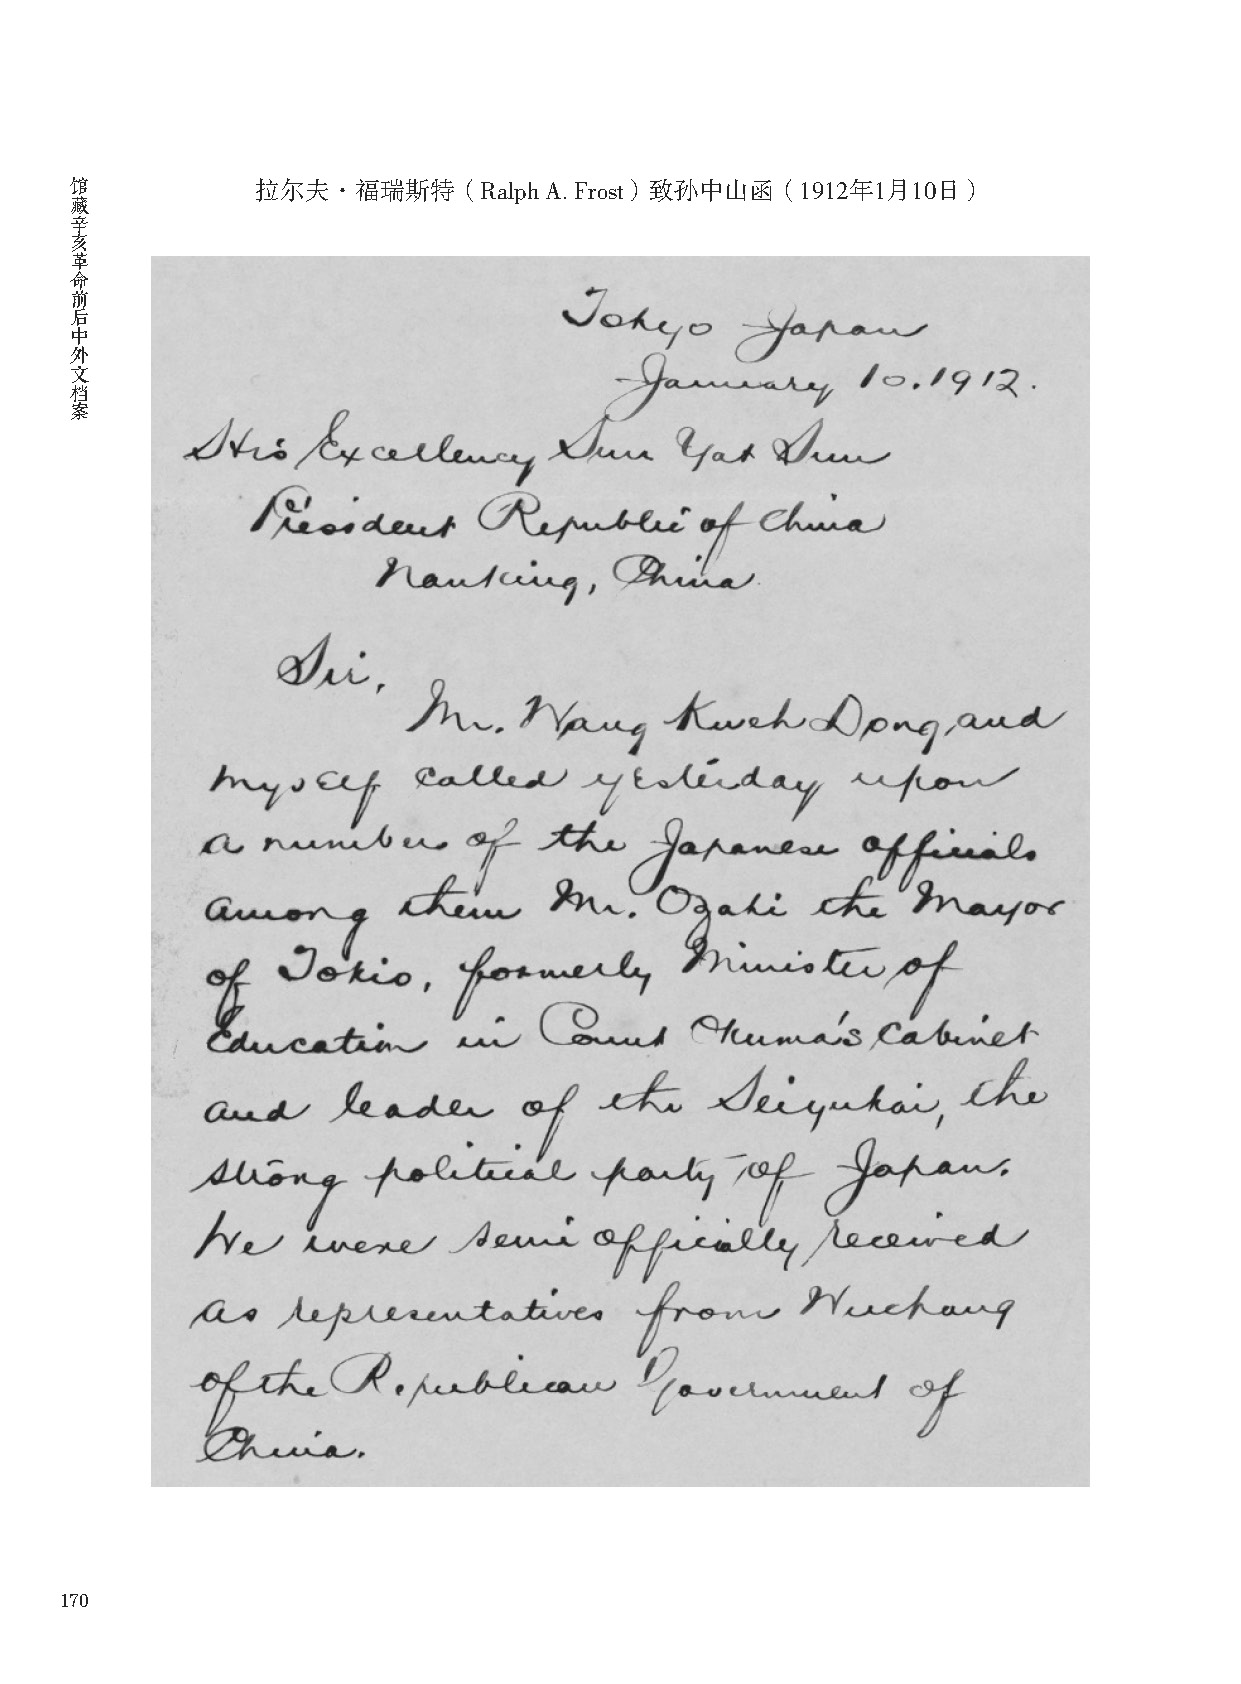 馆藏辛亥革命前后中外文档案
拉尔夫·福瑞斯特（Ralph A. Frost）致孙中山函（1912年1月10日）
Tokyo Japan
January 10.1912.
His Excellency Sun Yat Sun
President Republic of China
Nanking, China
Sir,
Mr. Wang Kweh Dong, and
myself called yesterday upon
a number of the Japanese officials
among them Mr. Ozaki the Mayor
of Tokio, formerly Minister of
Education in Count Okuma's Cabinet
and leader of the Seiyukai, the
strong political party of Japan.
We were semi officially received
as representatives from Wuchang
of the Republican Government of
China.
170